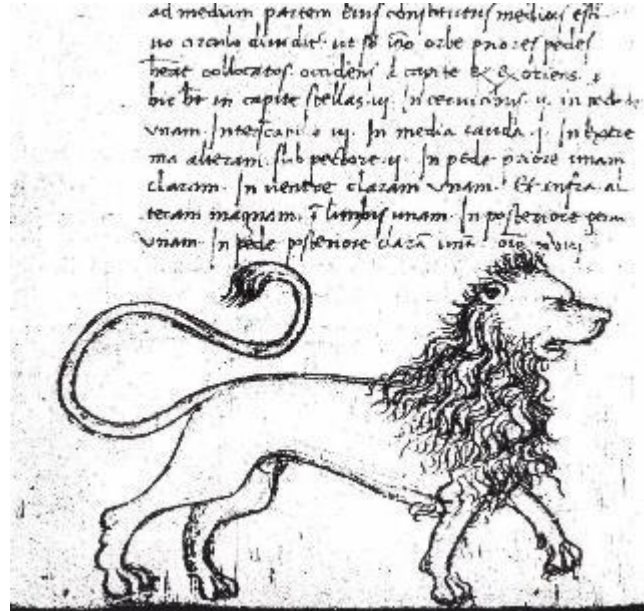 ad mediam partem eius constitutus medius esti
uo circulo diuidit. ut sb ipso orbe priores pedes
heat collocatos. occidens a capite & exoriens.
hic ht in capite stellas. iij. In ceruicibus. ij. in pectore
vnam. Interscapi o iij. In media cauda. j. In extre
ma alteram. sub pectore. ij. In pede priore unam
claram. In uentre claram vnam. Et infra al
teram magnam. I lumbis unam. In posteriore genu
vnam. In pede posteriore clarā unā.